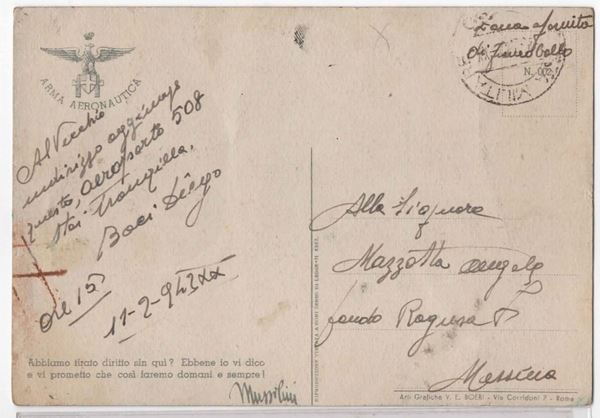 ARMA AERONAUTICA
Al Vecchio
indirizzo aggiungi
questo, aeroporto 508
stai tranquilla.
Baci Diego
Ore 15
11-2-942 XX
Abbiamo tirato diritto sin qui? Ebbene io vi dico
e vi prometto che così faremo domani e sempre!
Mussolini
Zona sfornita
di francobollo
N. 002
Alla Signora
Mazzotta Angela
fondo Ragusa 7
Messina
Arti Grafiche V. E. BOERI - Via Corridoni 7 - Roma